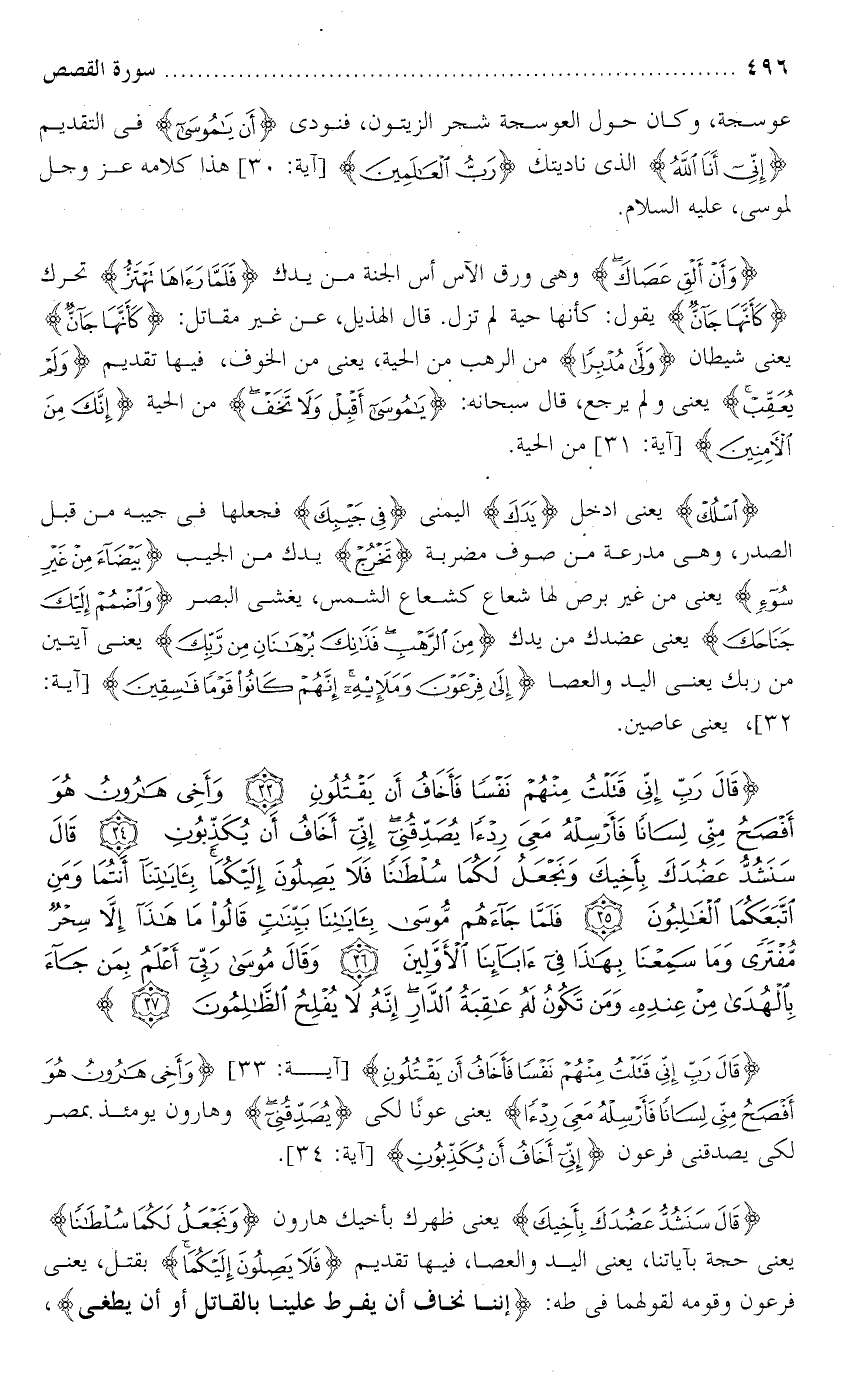 ٤٩٦ ........................................................................ سورة القصص
عوسجة، وكان حول العوسجة شجر الزيتون، فنودى ﴿أَن يَٰمُوسَىٰٓ﴾ فى التقديم
﴿إِنِّىٓ أَنَا ٱللَّهُ﴾ الذى ناديتك ﴿رَبُّ ٱلْعَٰلَمِينَ﴾ [آية: ٣٠] هذا كلامه عز وجل
لموسى، عليه السلام.
﴿وَأَنْ أَلْقِ عَصَاكَ ۖ﴾ وهى ورق الآس أس الجنة من يدك ﴿فَلَمَّا رَءَاهَا تَهْتَزُّ﴾ تحرك
﴿كَأَنَّهَا جَآنٌّ﴾ يقول: كأنها حية لم تزل. قال الهذيل، عن غير مقاتل: ﴿كَأَنَّهَا جَآنٌّ﴾
يعنى شيطان ﴿وَلَّىٰ مُدْبِرًا﴾ من الرهب من الحية، يعنى من الخوف، فيها تقديم ﴿وَلَمْ
يُعَقِّبْ ۚ﴾ يعنى ولم يرجع، قال سبحانه: ﴿يَٰمُوسَىٰٓ أَقْبِلْ وَلَا تَخَفْ ۖ﴾ من الحية ﴿إِنَّكَ مِنَ
ٱلْءَامِنِينَ﴾ [آية: ٣١] من الحية.
﴿ٱسْلُكْ﴾ يعنى ادخل ﴿يَدَكَ﴾ اليمنى ﴿فِى جَيْبِكَ﴾ فجعلها فى جيبه من قبل
الصدر، وهى مدرعة من صوف مضربة ﴿تَخْرُجْ﴾ يدك من الجيب ﴿بَيْضَآءَ مِنْ غَيْرِ
سُوٓءٍ﴾ يعنى من غير برص لها شعاع كشعاع الشمس، يغشى البصر ﴿وَٱضْمُمْ إِلَيْكَ
جَنَاحَكَ﴾ يعنى عضدك من يدك ﴿مِنَ ٱلرَّهْبِ ۖ فَذَٰنِكَ بُرْهَٰنَانِ مِن رَّبِّكَ﴾ يعنى آيتين
من ربك يعنى اليد والعصا ﴿إِلَىٰ فِرْعَوْنَ وَمَلَإِيْهِۦٓ ۚ إِنَّهُمْ كَانُوا۟ قَوْمًا فَٰسِقِينَ﴾ [آية:
٣٢]، يعنى عاصين.
﴿قَالَ رَبِّ إِنِّى قَتَلْتُ مِنْهُمْ نَفْسًا فَأَخَافُ أَن يَقْتُلُونِ ٣٣ وَأَخِى هَٰرُونُ هُوَ
أَفْصَحُ مِنِّى لِسَانًا فَأَرْسِلْهُ مَعِىَ رِدْءًا يُصَدِّقُنِىٓ ۖ إِنِّىٓ أَخَافُ أَن يُكَذِّبُونِ ٣٤ قَالَ
سَنَشُدُّ عَضُدَكَ بِأَخِيكَ وَنَجْعَلُ لَكُمَا سُلْطَٰنًا فَلَا يَصِلُونَ إِلَيْكُمَا ۚ بِـَٔايَٰتِنَآ أَنتُمَا وَمَنِ
ٱتَّبَعَكُمَا ٱلْغَٰلِبُونَ ٣٥ فَلَمَّا جَآءَهُم مُّوسَىٰ بِـَٔايَٰتِنَا بَيِّنَٰتٍ قَالُوا۟ مَا هَٰذَآ إِلَّا سِحْرٌ
مُّفْتَرًى وَمَا سَمِعْنَا بِهَٰذَا فِىٓ ءَابَآئِنَا ٱلْأَوَّلِينَ ٣٦ وَقَالَ مُوسَىٰ رَبِّىٓ أَعْلَمُ بِمَن جَآءَ
بِٱلْهُدَىٰ مِنْ عِندِهِۦ وَمَن تَكُونُ لَهُۥ عَٰقِبَةُ ٱلدَّارِ ۖ إِنَّهُۥ لَا يُفْلِحُ ٱلظَّٰلِمُونَ ٣٧ ﴾
﴿قَالَ رَبِّ إِنِّى قَتَلْتُ مِنْهُمْ نَفْسًا فَأَخَافُ أَن يَقْتُلُونِ﴾ [آيـــة: ٣٣] ﴿وَأَخِى هَٰرُونُ هُوَ
أَفْصَحُ مِنِّى لِسَانًا فَأَرْسِلْهُ مَعِىَ رِدْءًا﴾ يعنى عونًا لكى ﴿يُصَدِّقُنِىٓ ۖ﴾ وهارون يومئذ بمصر
لكى يصدقنى فرعون ﴿إِنِّىٓ أَخَافُ أَن يُكَذِّبُونِ﴾ [آية: ٣٤].
﴿قَالَ سَنَشُدُّ عَضُدَكَ بِأَخِيكَ﴾ يعنى ظهرك بأخيك هارون ﴿وَنَجْعَلُ لَكُمَا سُلْطَٰنًا﴾
يعنى حجة بآياتنا، يعنى اليد والعصا، فيها تقديم ﴿فَلَا يَصِلُونَ إِلَيْكُمَا ۚ﴾ بقتل، يعنى
فرعون وقومه لقولهما فى طه: ﴿إننا نخاف أن يفرط علينا بالقاتل أو أن يطغى﴾،